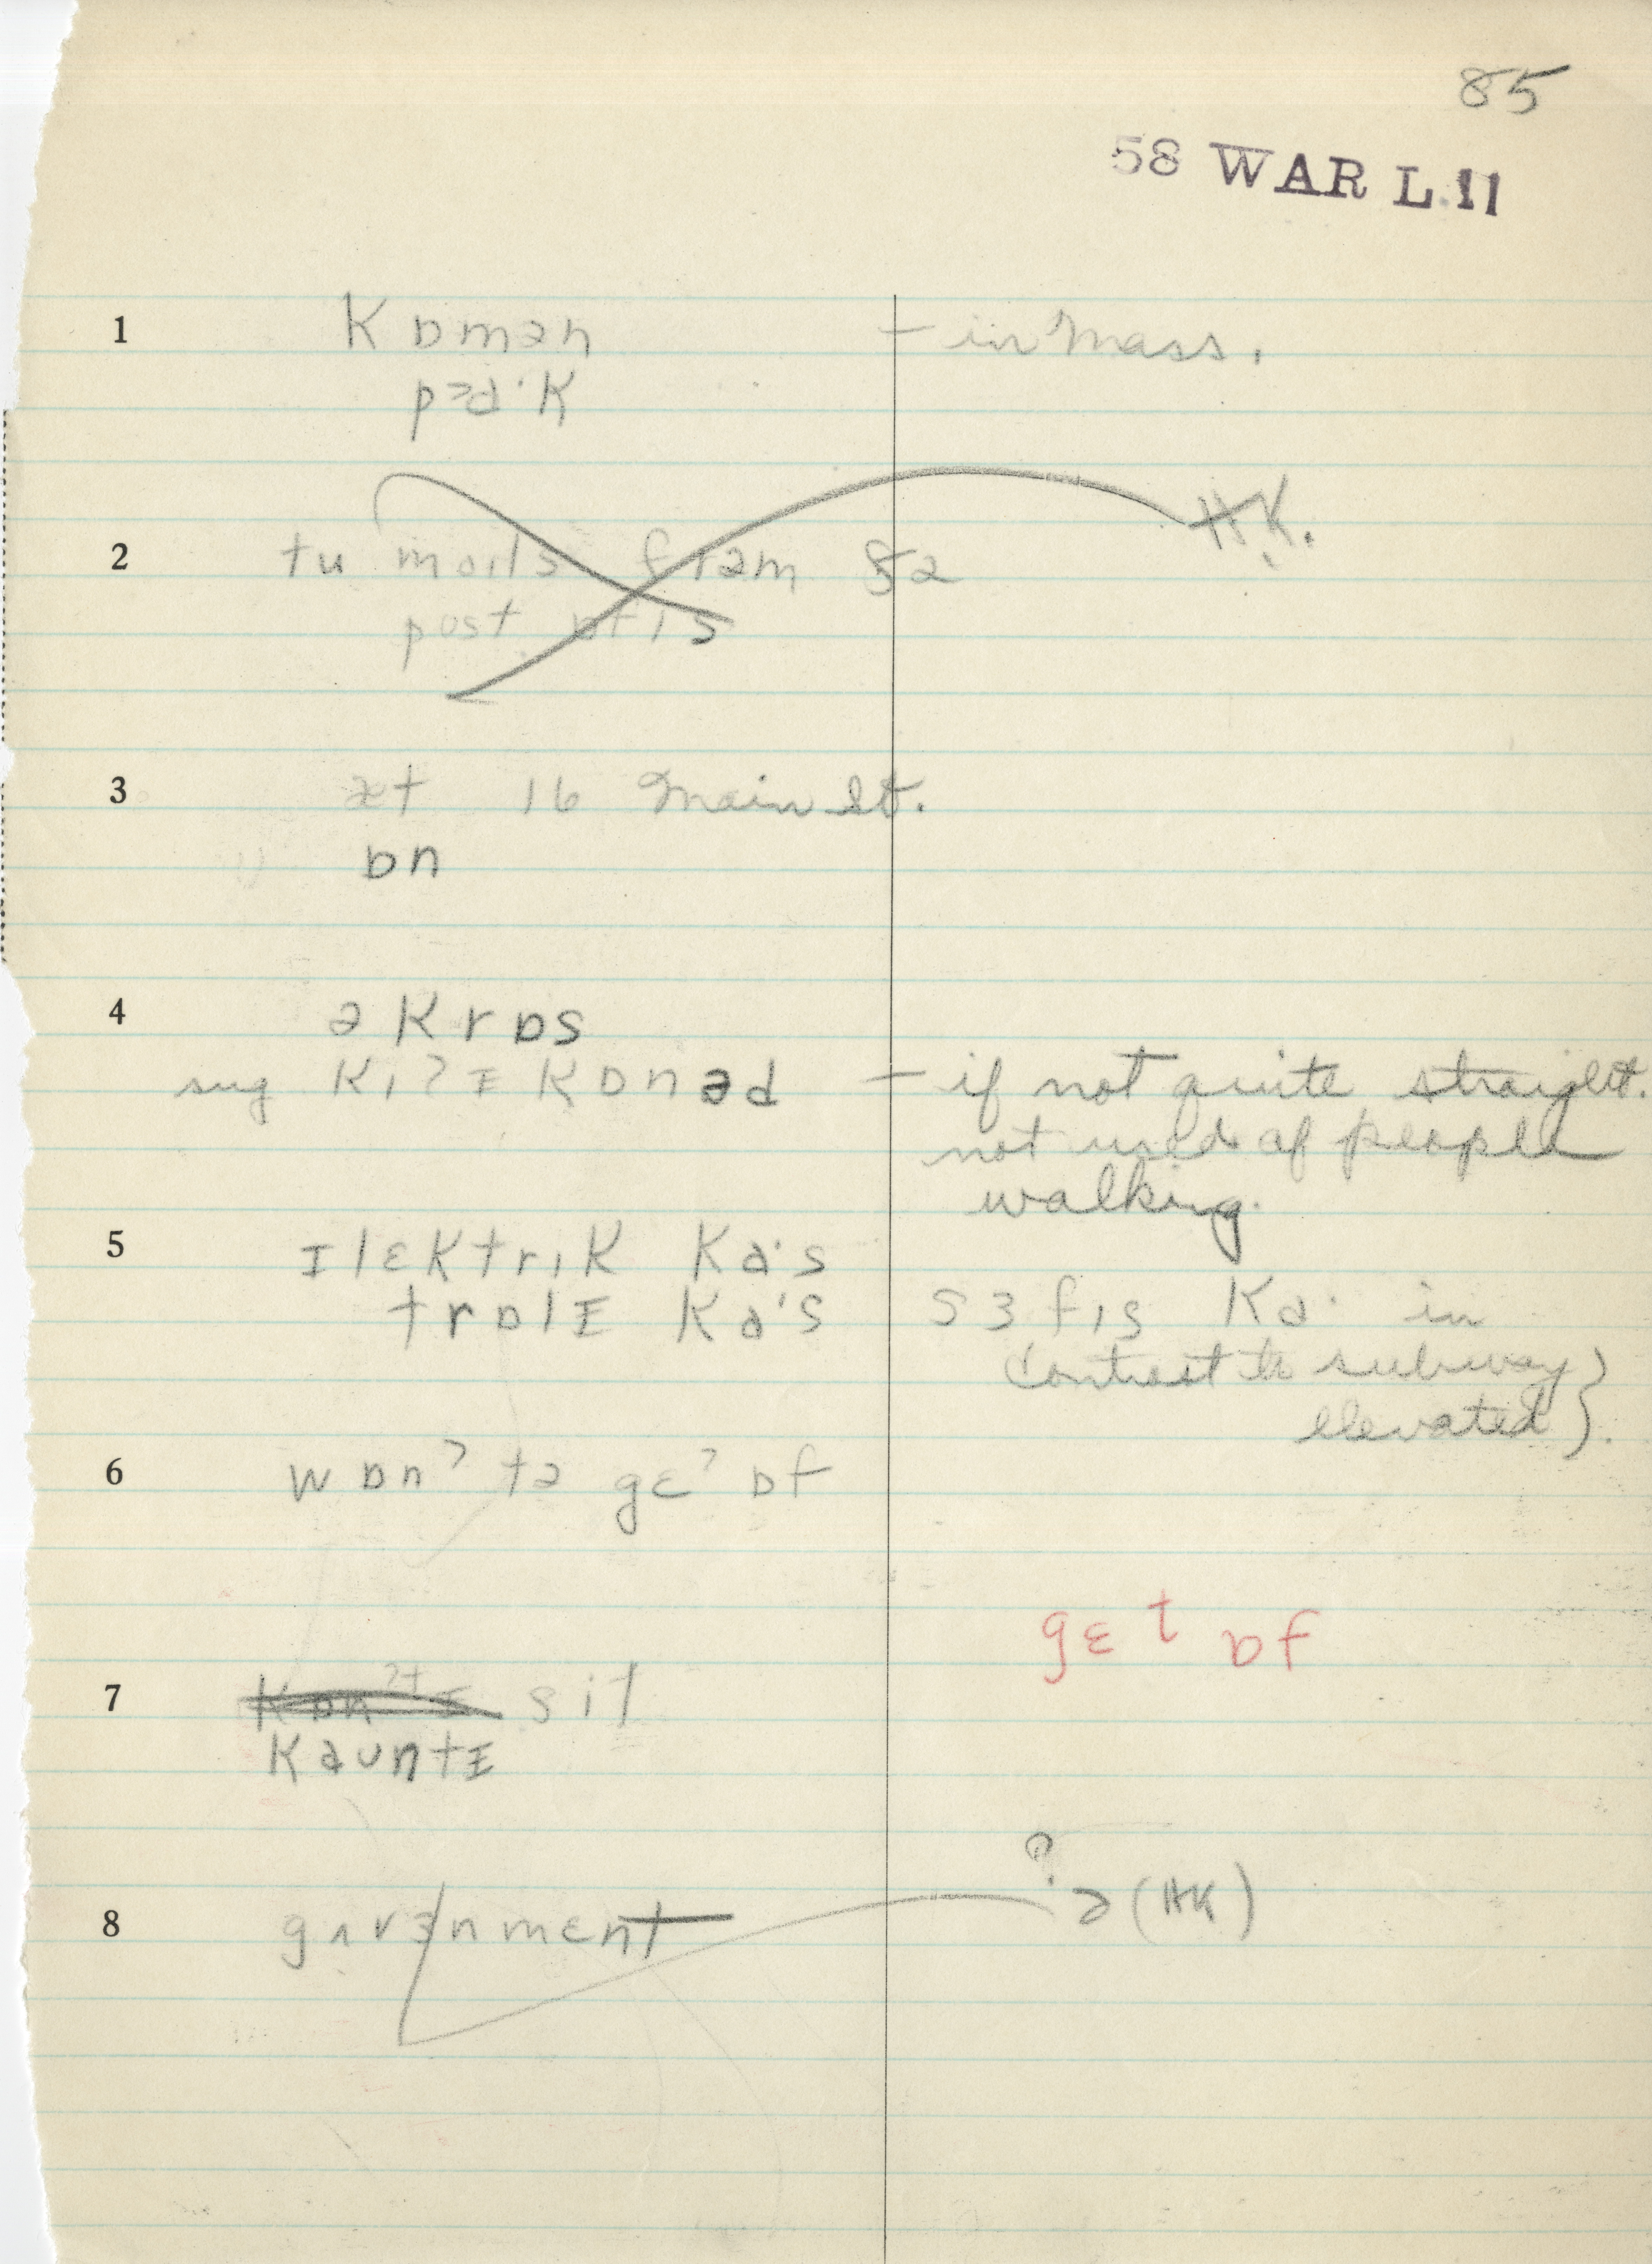 85
58 WAR L.11
1 kɒmən – in Mass.
pɑ·k
H.K.
2 tu maɪls frəm ðə
post ɒfɪs
3 æt 16 Main St.
ɒn
4 əkrɒs
sug kɪʔɪ kɒnəd – if not quite straight.
not used of people
walking.
5 ɪlɛktrɪk ka·s
trɒlɪ ka·s sɜfɪs ka· in
contrast to subway }
elevated }.
6 wɒnʔ tə gɛʔ ɒf
gɛt ɒf
7 sit
kaʊntɪ
?
8 gʌvɜnmɛnt ə (HK)